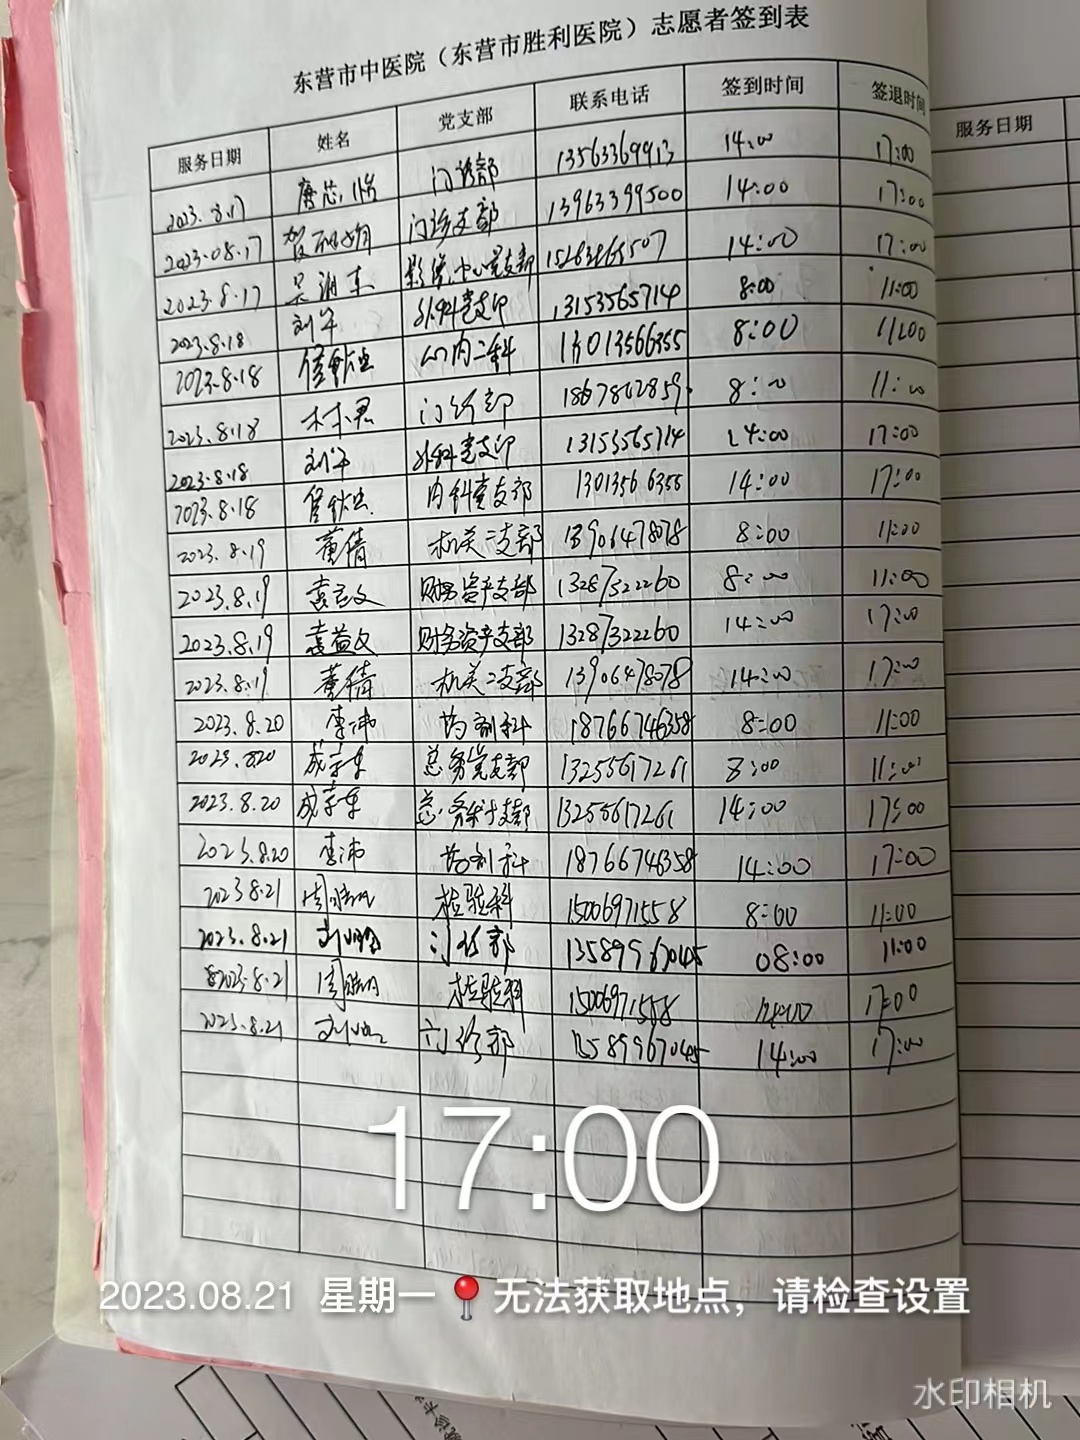 东营市中医院（东营市胜利医院）志愿者签到表
服务日期 姓名 党支部 联系电话 签到时间 签退时间 服务日期
2023.8.17 门诊部 13563369913 14:00 17:00
2023.08.17 门诊支部 13963399500 14:00 17:00
2023.8.17 影像中心党支部 14:00 17:00
2023.8.18 刘军 外科党支部 13153565714 8:00 11:00
2023.8.18 心内二科 13013566355 8:00 11:00
2023.8.18 林君 门诊部 18678628591 8:00 11:00
2023.8.18 刘军 外科党支部 13153565714 14:00 17:00
2023.8.18 内科党支部 13013566355 14:00 17:00
2023.8.19 董倩 机关二支部 13906478078 8:00 11:00
2023.8.19 袁益文 财务资产支部 13287322260 8:00 11:00
2023.8.19 袁益文 财务资产支部 13287322260 14:00 17:00
2023.8.19 董倩 机关二支部 13906478078 14:00 17:00
2023.8.20 李沛 药剂科 18766746358 8:00 11:00
2023.8.20 总务党支部 13255617261 8:00 11:00
2023.8.20 总务党支部 13255617261 14:00 17:00
2023.8.20 李沛 药剂科 18766746358 14:00 17:00
2023.8.21 检验科 15006971558 8:00 11:00
2023.8.21 门诊部 13589967045 08:00 11:00
2023.8.21 检验科 15006971558 14:00 17:00
2023.8.21 门诊部 13589967045 14:00 17:00
17:00
2023.08.21 星期一 无法获取地点，请检查设置
水印相机